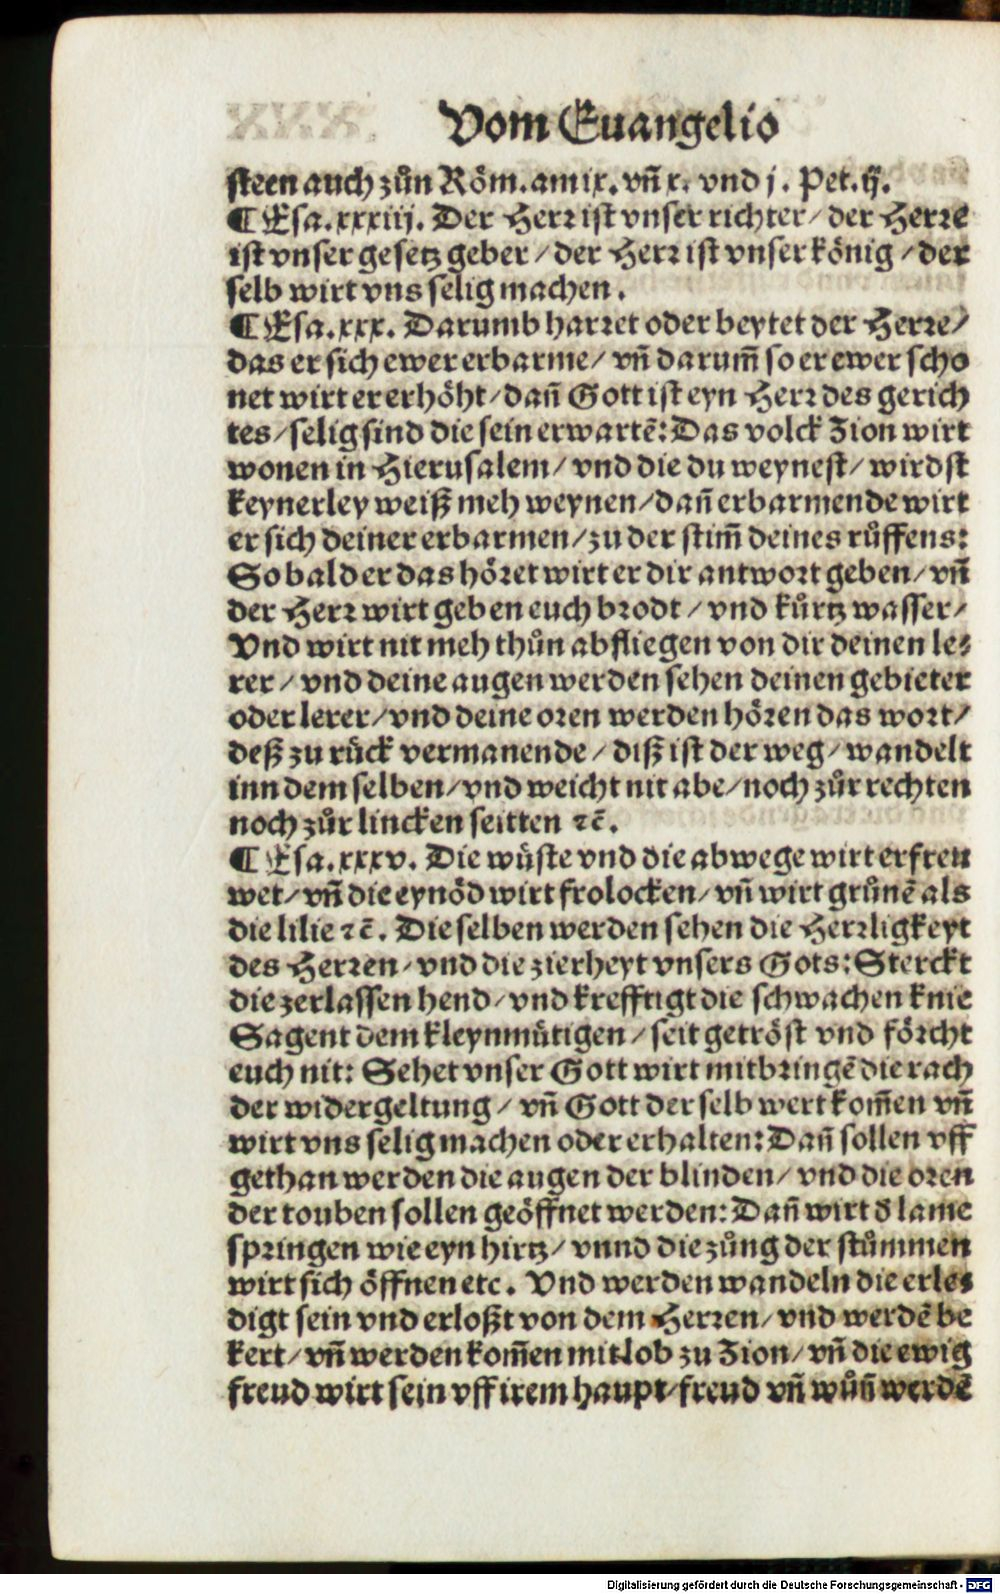 Vom Euangelio
steen auch zůn Röm. am ix. vñ x. vnd j. Pet. ij.
¶ Esa. xxxiij. Der Herr ist vnser richter/ der Herre
ist vnser gesetz geber / der Herr ist vnser könig / der
selb wirt vns selig machen.
¶ Esa. xxx. Darumb harret oder beytet der Herre/
das er sich ewer erbarme/ vñ darum̃ so er ewer scho
net wirt er erhöht/ dañ Gott ist eyn Herr des gerich
tes/ selig sind die sein erwartẽ: Das volck Zion wirt
wonen in Hierusalem/ vnd die du weynest/ wirdst
keynerley weiß meh weynen/ dañ erbarmende wirt
er sich deiner erbarmen/ zu der stim̃ deines růffens:
So bald er das höret wirt er dir antwort geben/ vñ
der Herr wirt geben euch brodt / vnd kůrtz wasser/
Vnd wirt nit meh thůn abfliegen von dir deinen le⸗
rer / vnd deine augen werden sehen deinen gebieter
oder lerer/ vnd deine oren werden hören das wort/
deß zu rück vermanende / diß ist der weg/ wandelt
inn dem selben/ vnd weicht nit abe/ noch zůr rechten
noch zůr lincken seitten ⁊c̃.
¶ Esa. xxxv. Die wüste vnd die abwege wirt erfreu
wet/ vñ die eynöd wirt frolocken/ vñ wirt grůnẽ als
die lilie ⁊c̃. Die selben werden sehen die Herrligkeyt
des Herren/ vnd die zierheyt vnsers Gots: Sterckt
die zerlassen hend/ vnd krefftigt die schwachen knie
Sagent dem kleynmütigen / seit getröst vnd förcht
euch nit: Sehet vnser Gott wirt mitbringẽ die rach
der widergeltung / vñ Gott der selb wert kom̃en vñ
wirt vns selig machen oder erhalten: Dañ sollen vff
gethan werden die augen der blinden/ vnd die oren
der touben sollen geöffnet werden: Dañ wirt ð lame
springen wie eyn hirtz/ vnnd die zůng der stům̃en
wirt sich öffnen etc. Vnd werden wandeln die erle⸗
digt sein vnd erloßt von dem Herren/ vnd werdẽ be
kert/ vñ werden kom̃en mit lob zu Zion/ vñ die ewig
freud wirt sein vff irem haupt/ freud vñ wůñ werdẽ
Digitalisierung gefördert durch die Deutsche Forschungsgemeinschaft - DFG